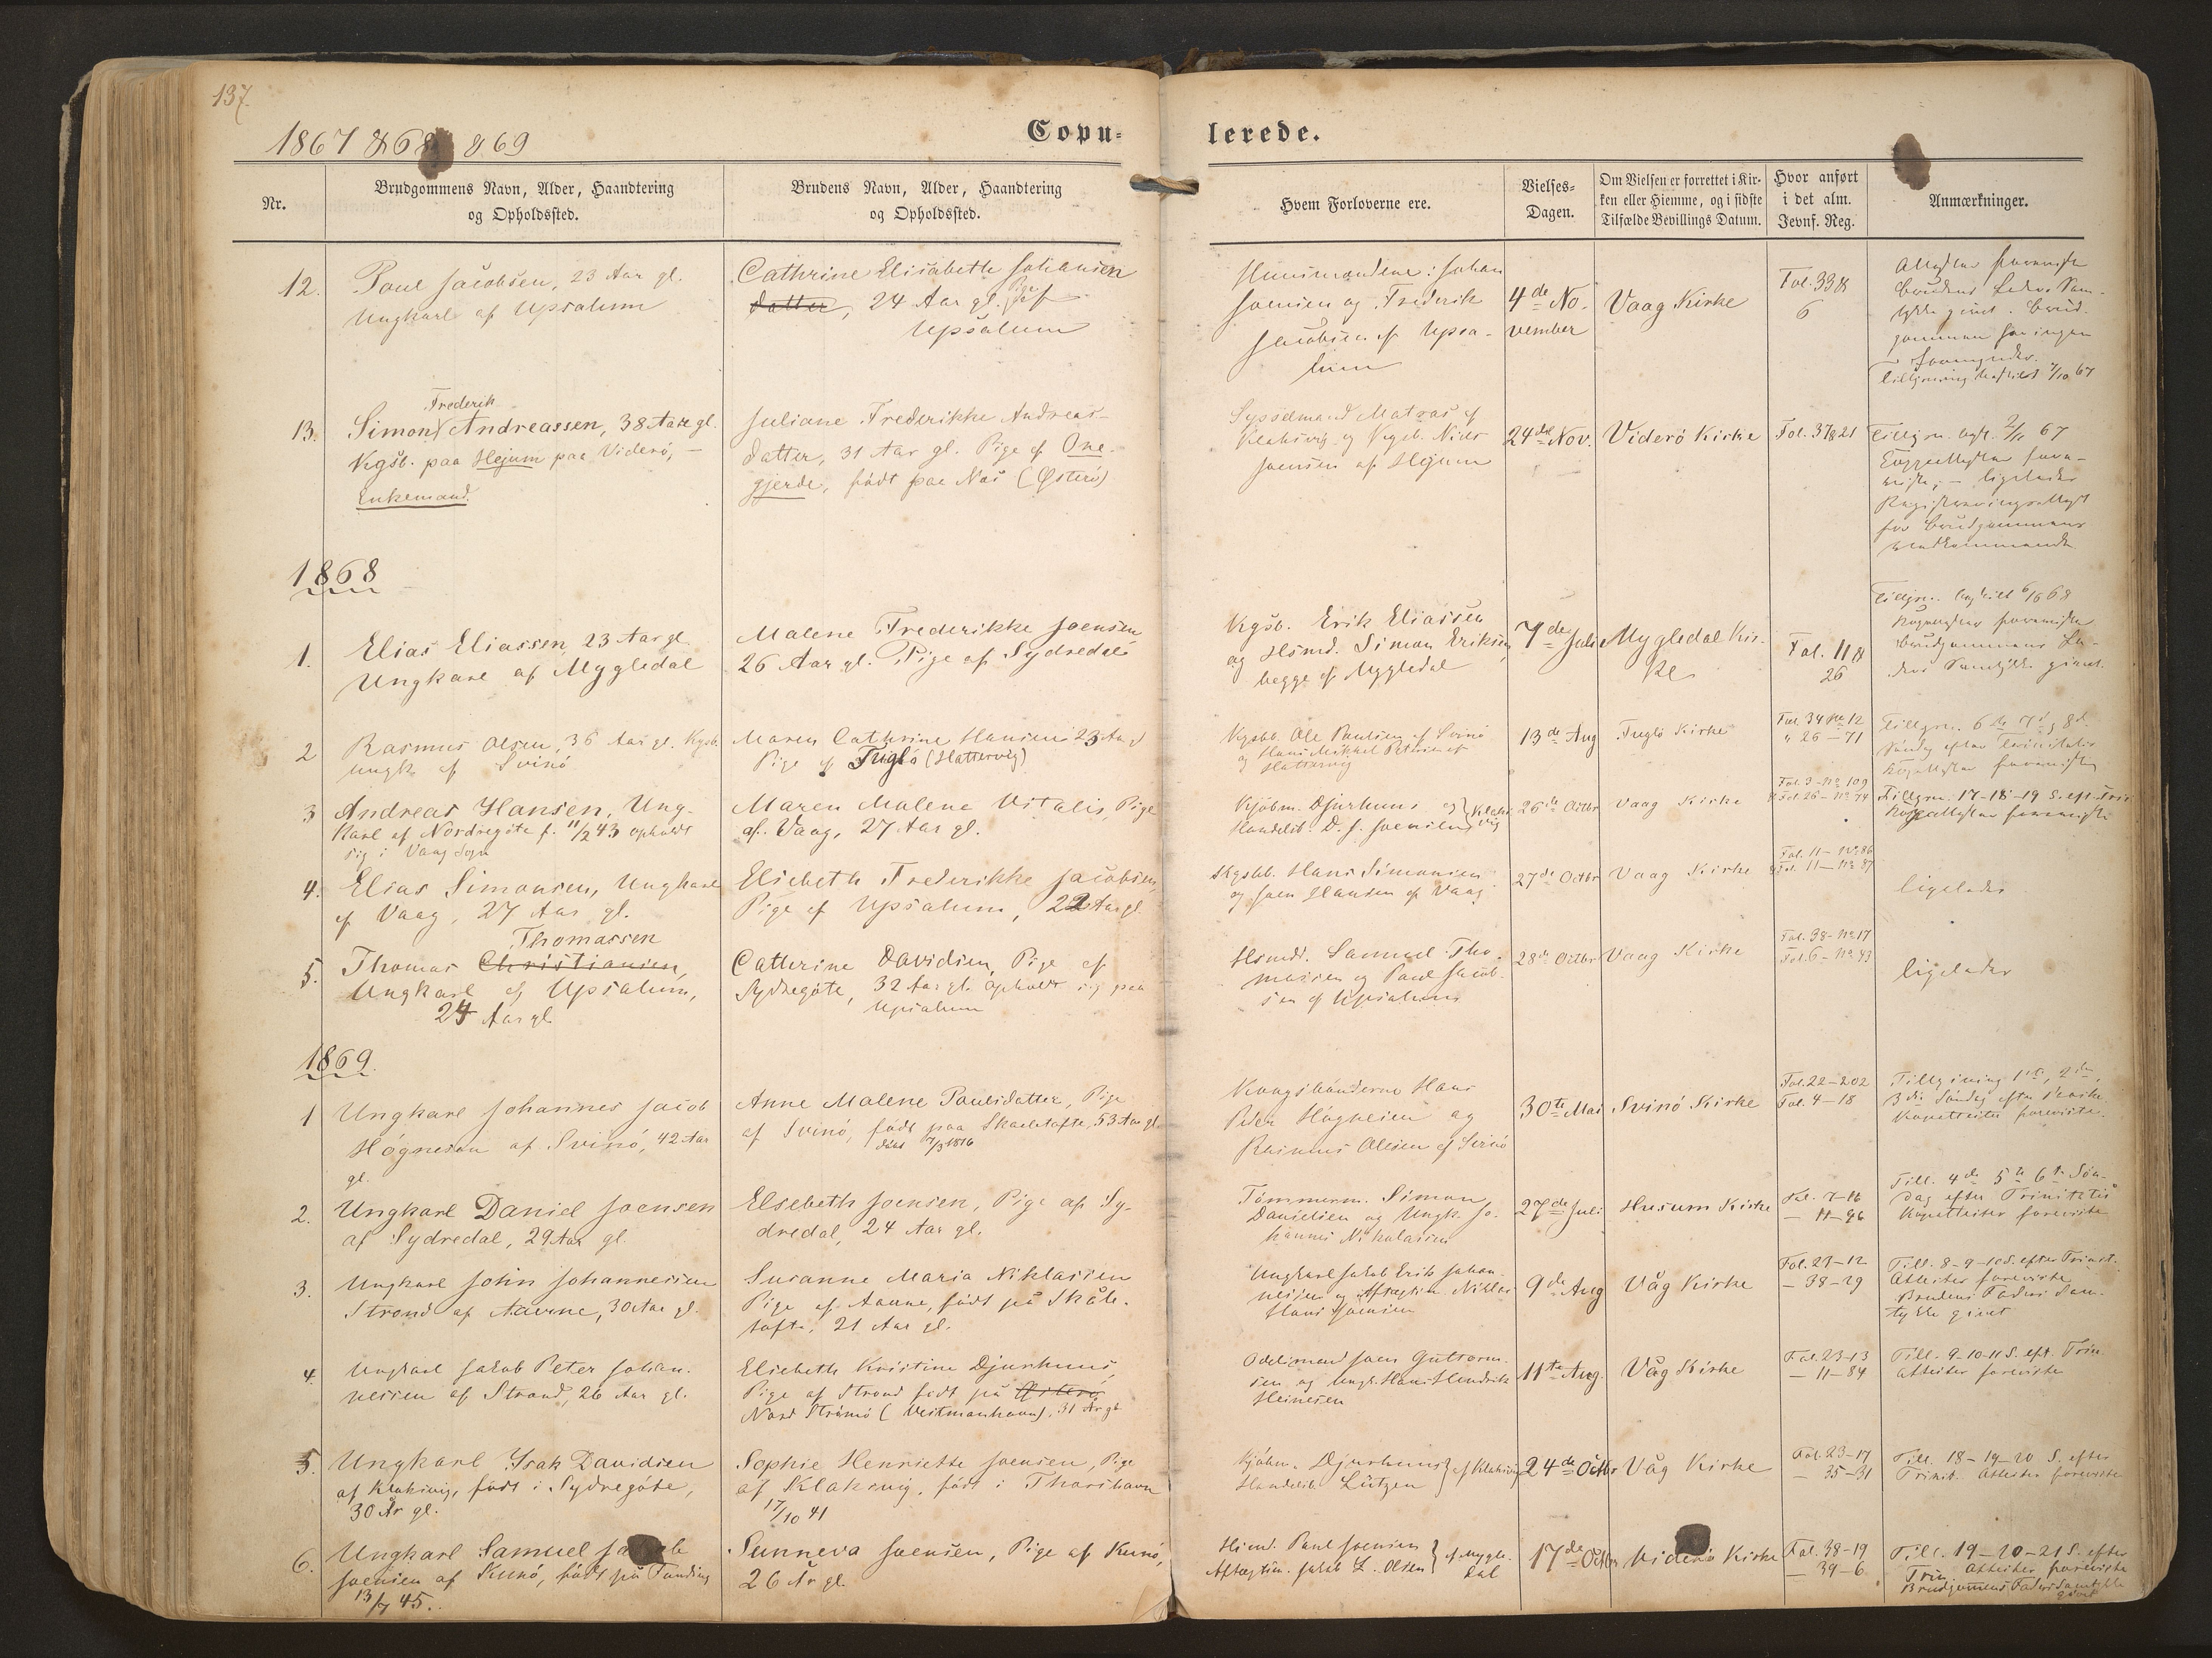 137.
1867 & 68 & 69
Copu-
lerede.
Nr.
Brudgommens Navn, Alder, Haandtering
og Opholdssted.
Brudens Navn, Alder, Haandtering
og Opholdssted.
Hvem Forloverne ere.
Vielses-
Dagen.
Om Vielsen er forrettet i Kir-
ken eller Hiemme, og i sidste
Tilfælde Bevillings Datum.
Hvor anført
i det alm.
Jevnf. Reg.
Anmærkninger.
12.
Poul Jacobsen, 23 Aar gl.
Ungkarl af Upsalum
Cathrine Elisabeth Johansen
datter, 24 Aar gl. Pige af
Upsalum
Huusmændene: Johan
Joensen og Frederik
Jacobsen af Upsa-
lum
4de No-
vember
Vaag Kirke
Fol. 33 &
6
Attester foreviste
Brudens Faders Sam-
tykke givet. Brud-
gommen har ingen
Formynder.
13.
Frederik
Simon Andreassen, 38 Aar gl.
Kgsb. paa Hejum paa Viderö, -
Enkemand.
Juliane Frederikke Andreas-
datter, 31 Aar gl. Pige af One-
gjerde, födt paa Nas (Österö)
Sysselmand Matras af
Klaksvig og Kgsb. Niels
Joensen af Hejum
24de Nov.
Viderö Kirke
Fol. 37 & 21
1868
1.
Elias Eliassen, 23 Aar gl.
Ungkarl af Mygledal
Malene Frederikke Joensen
26 Aar gl. Pige af Sydredal
Kgsb. Erik Eliassen
og Hsmd. Simon Eriksen,
begge af Mygledal
7de Juli
Mygledal Kir-
ke
Fol. 11 &
26
2
Rasmus Olsen, 36 Aar gl. Kgsb.
Ungk. af Svinö
Maren Cathrine Hansen 23 Aar gl
Pige af Fuglö (Hattervig)
Kgsbb. Ole Paulsen af Svinö
og Hans Mikkel Petersen af
Hattervig
13de Aug
Fuglö Kirke
Fol. 34 No 12
" 26 - 71
3
Andreas Hansen, Ung-
karl af Nordregöte f. 11/2 43 opholdt
sig i Vaag Sogn
Maren Malene Vitalis, Pige
af Vaag, 27 Aar gl.
Kjöbm. Djurhuus og } Klaks-
Handelsb. D. J. Joensen } vig
26de Octbr
Vaag Kirke
Fol. 9 - No 109
& Fol. 26 - No 74
Tillysn. 17-18-19 S. eft. Trin
4.
Elias Simonsen, Ungkarl
af Vaag, 27 Aar gl.
Elsebeth Frederikke Jacobsen,
Pige af Upsalum, 22 Aar gl.
Kgsbb. Hans Simonsen
og Joen Hansen af Vaag
27de Octbr
Vaag Kirke
Fol. 11 - No. 86
& Fol. 11 - No 87
ligeledes
5.
Thomassen
Thomas Christiansen,
Ungkarl af Upsalum,
24 Aar gl
Cathrine Davidsen, Pige af
Sydregöte, 32 Aar gl. opholdt sig paa
Upsalum
Hsmd. Samuel Tho-
massen og Poul Jacob-
sen af Upsalum
28de Octbr
Vaag Kirke
Fol. 38 - No 17
Fol. 6 - No. 43
ligeledes
1869.
1
Ungkarl Johannes Jacob
Högnesen af Svinö, 42 Aar
gl.
Anne Malene Poulsdatter, Pige
af Svinö, födt paa Skaaletofte, 53 Aar gl.
Kongsbönderne Hans
Peter Högnesen og
Rasmus Olesen af Svinö
30te Mai
Svinö Kirke
Fol. 22-202
Fol. 4-18
Tillysning 1ste, 2den,
3die Söndag efter Paaske
Kopattester foreviste.
2.
Ungkarl Daniel Joensen
af Sydredal, 29 Aar gl.
Elsebeth Joensen, Pige af Sy-
dredal, 24 Aar gl.
Tömmerm. Simon
Danielsen og Ungk. Jo-
hannes Nikolasen
27de Juli
Husum Kirke
Fol. 7-16
- 11-96
Till. 4de 5te 6te Sön-
dag efter Trinitatis
Kopattester foreviste
3.
Ungkarl John Johannessen
Strond af Aarne, 30 Aar gl.
Susanne Maria Niklassen
Pige af Aarne, födt på Skåle-
tofte, 21 Aar gl.
Ungkarl Jakob Erik Johan-
nessen og Aftægtsm. Niklas
Hans Joensen
9de Aug
Våg Kirke
Fol. 21-12
- 38-29
Till. 8-9-10 S. efter Trinit.
Attester foreviste
Brudens Faders Sam-
tykke givet
4.
Ungkarl Jakob Peter Johan-
nessen af Strond, 26 Aar gl.
Elsebeth Kristine Djurhuus,
Pige af Strond födt på Österö
Nord Strömö (Vestmanhavn), 31 År gl
Odelsmand Joen Guttorm-
sen og Ungk. Hans Hendrik
Heinesen
11te Aug.
Våg Kirke
Fol. 23-13
- 11-84
Till. 9-10-11 S. eft. Trin
Attester foreviste
5.
Ungkarl Isak Davidsen
af Klaksvig, födt i Sydregöte,
30 År gl.
Sophie Henriette Joensen, Pige
af Klaksvig, födt i Thorshavn
17/10 41
Kjöbm. Djurhuus } af Klaksvig
Handelsb. Lützen }
24de Octbr
Våg Kirke
Fol. 23-17
- 35-31
Till. 18-19-20 S. efter
Trinit. Attester foreviste
6.
Ungkarl Samuel Jakob
Joensen af Kunö, födt på Funding
13/7 45.
Sunneva Joensen, Pige af Kunö,
26 År gl.
Hsmd. Poul Joensen } af Mygle-
Aftægtsm. Jakob L. Olsen } dal
17de Octbr
Viderö Kirke
Fol. 38-19
- 39-6
Till. 19-20-21 S. efter
Trin Attester foreviste
Brudgommens Faders Samtykke
givet